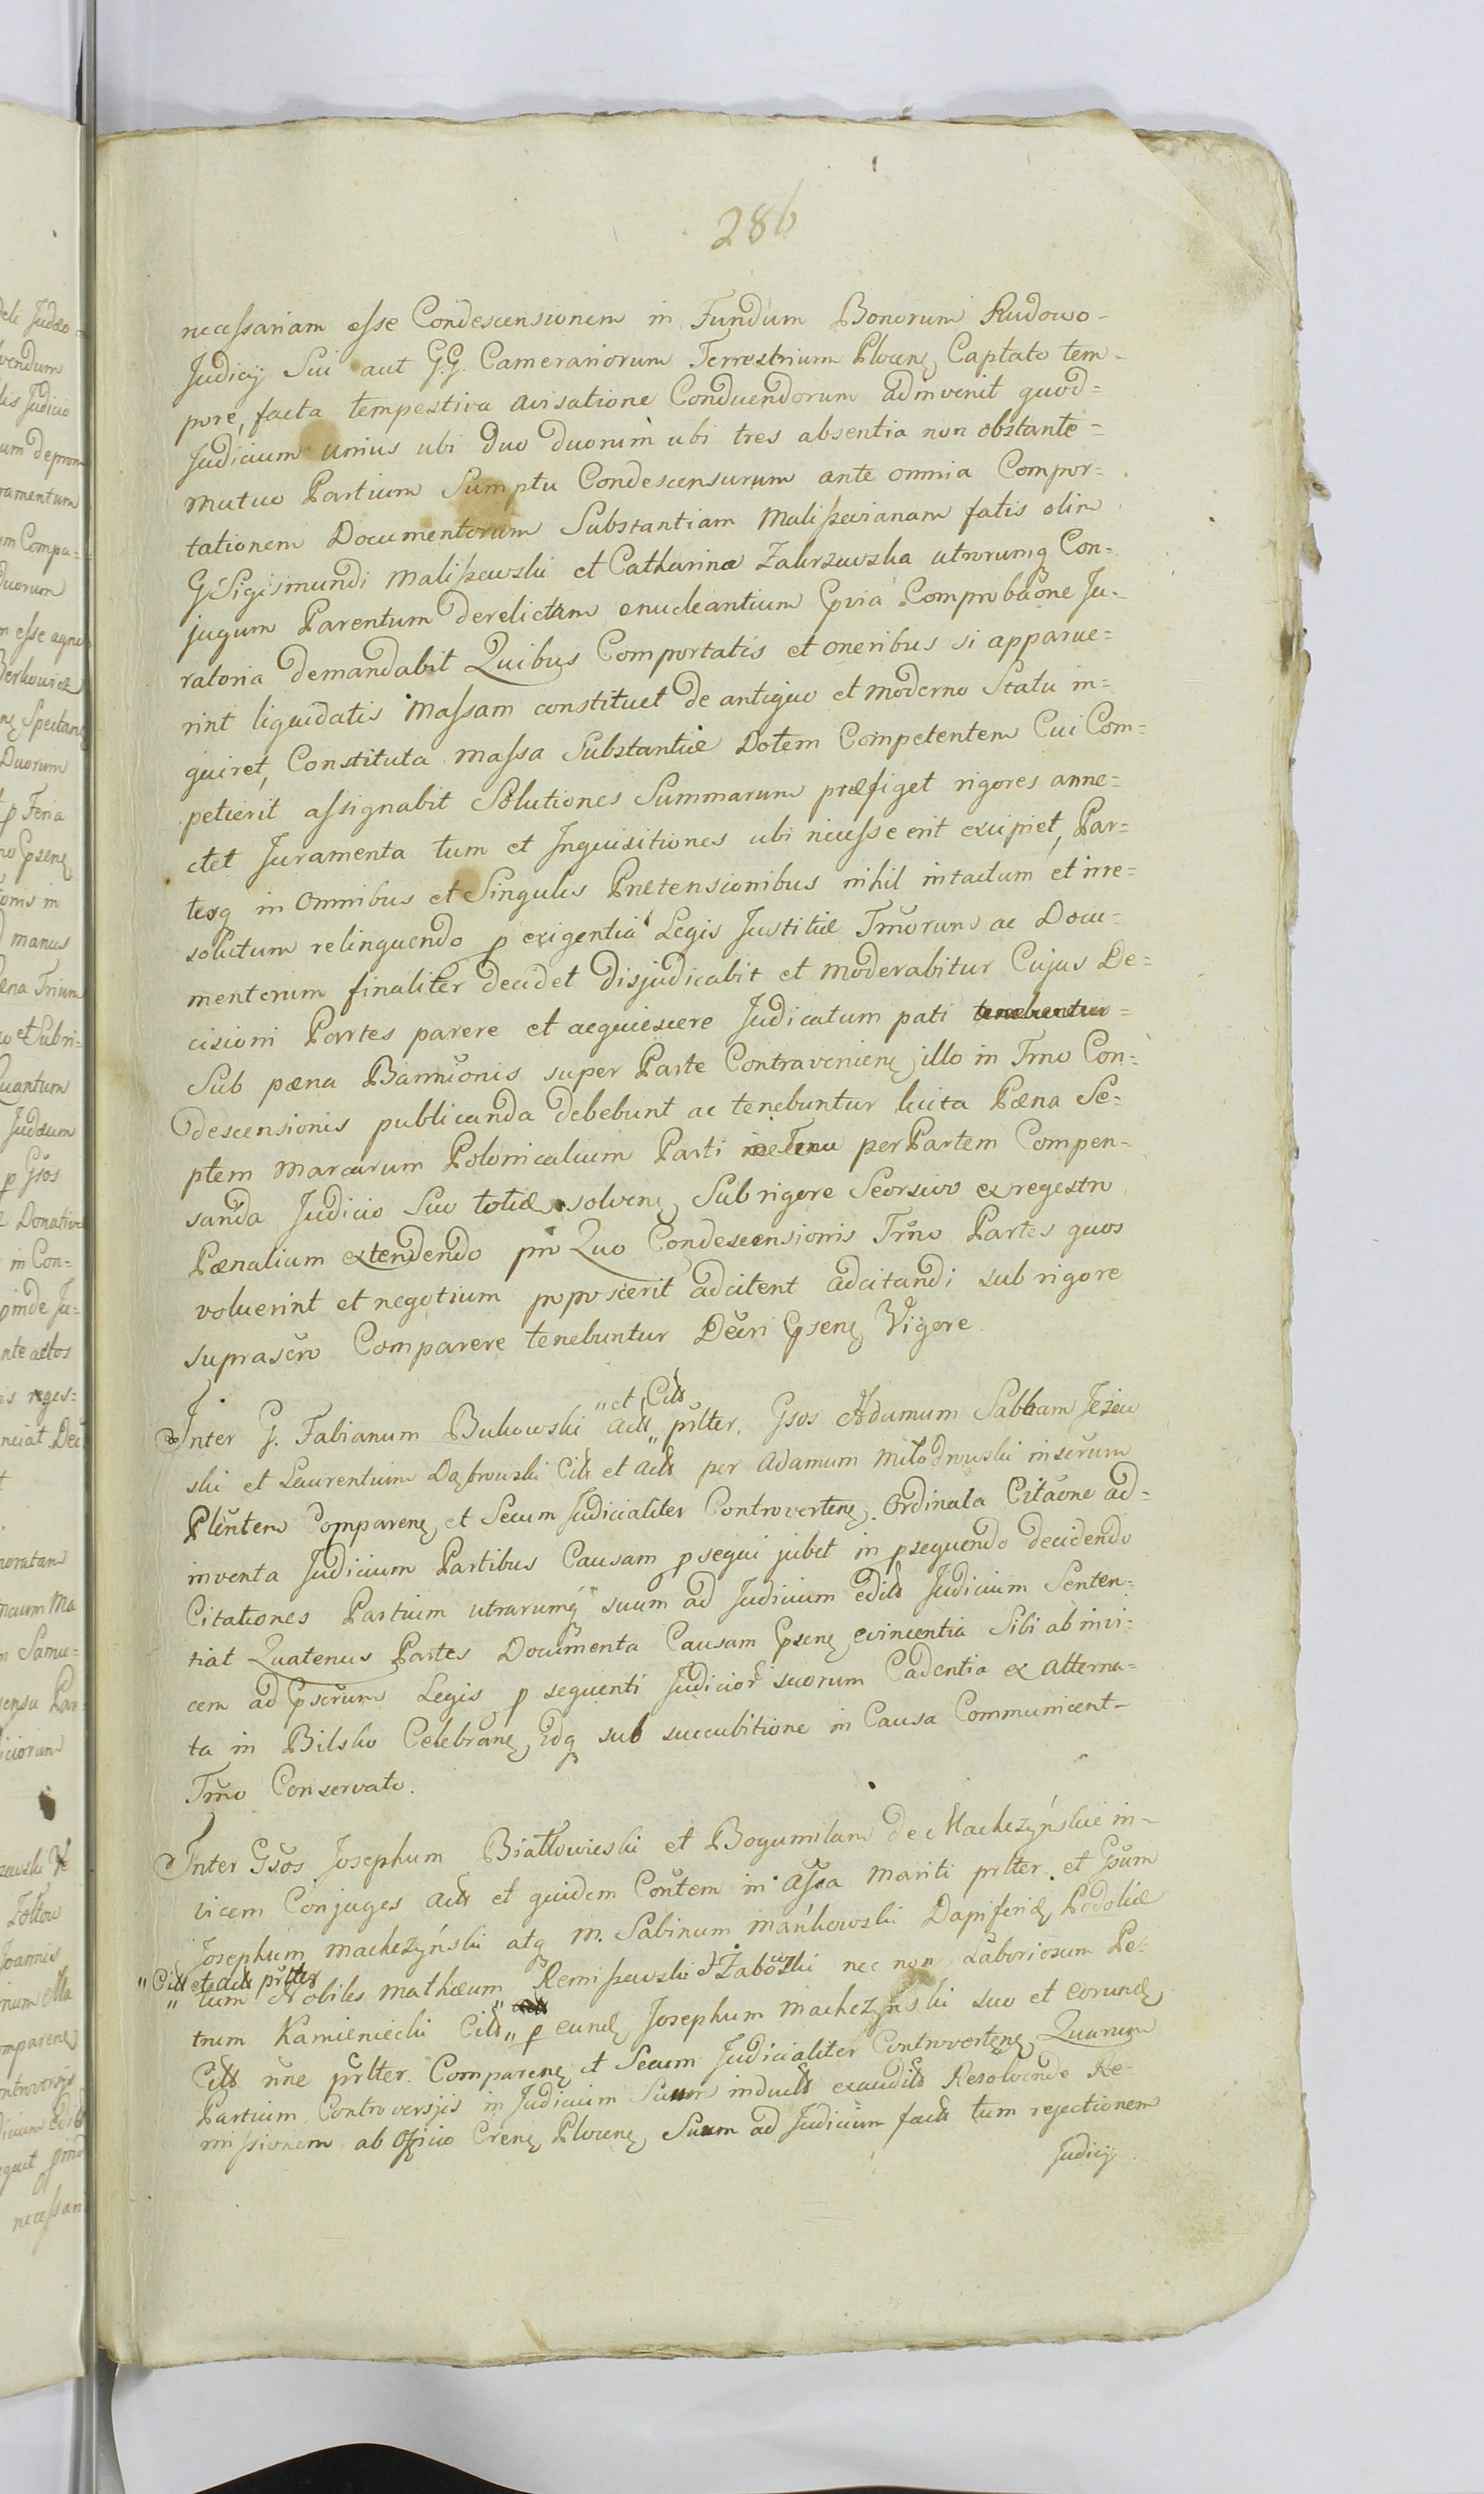 286
necessariam esse Condescensionem in Fundum Bonorum Rudowo-
Judicij Sui aut G.G. Camerariorum Terrestrium Plocen Captato tem-
pore, facta tempestiva avisatione Conducendorum adinvenit quod=
Judicium unius ubi duo duorum ubi tres absentia non obstante=
mutuo Partium Sumptu Condescensurum ante omnia Compor=
tationem Documentorum Substantiam Maliszevianam fatis olim
G Sigismundi Maliszewski et Catharinæ Zakrzewska utrorumq Con=
jugum Parentum derelictam enucleantium Pvia Comprobaone Ju-
ratoria demandabit Quibus Comportatis et oneribus si apparue=
rint liquidatis Massam constituet de antiquo et moderno Statu in=
quiret, Constituta massa Substantiæ Dotem Competentem Cui Com=
petierit assignabit Solutiones Summarum præfiget rigores anne=
ctet Juramenta tum et Inquisitiones ubi necesse erit excipiet, Par=
tesq in Omnibus et Singulis Prætensionibus nihil intactum et irre=
solutum relinquendo p exigentia Legis Justitiæ Tmorum ac Docu=
mentorum finaliter decidet disjudicabit et moderabitur Cujus De=
cisioni Partes parere et acquiescere Judicatum pati tenebuntur=
Sub pæna Bannionis super Parte Contravenien illo in Tmo Con=
descensionis publicanda debebunt ac tenebuntur luita Pæna Se=
ptem Marcarum Polonicalium Parti per Partem Compen-
sanda Judicio Suo totiæ solven Sub rigore Seorsivo ex regestro
Pænalium extendendo pro Quo Condescensionis Tmo Partes quos
voluerint et negotium poposcerit adcitent adcitandi sub rigore
suprascro Comparere tenebuntur Decri Psenς Vigore
" et Citt
Inter G. Fabianum Bukowski Actt " prlter. Gsos Adamum Sabbam Jeżew
ski et Laurentium Dąbrowski Citt et Actt per Adamum Miłodrowski inscrum
Plentem Comparen et Secum Judicialiter Controverten. Ordinata Citaone ad=
inventa Judicium Partibus Causam p sequi jubet in psequendo decidendo
Citationes Partium utrarumq suum ad Judicium editt Judicium Senten=
tiat Quatenus Partes Documenta Causam Psen evincentia Sibi ab invi=
cem ad Pscrum Legis p sequenti Judicior suorum Cadentia ex alterna=
ta in Bilsko Celebran idq sub succubitione in Causa Communicent-
Tmo Conservato.
Inter Gsos Josephum Białłowieski et Bogumilam de Machczyńskie in-
vicem Conjuges Actt et quidem Contem in Assa Mariti prlter. et Gsum
Josephum Machczyński atq M. Sabinum Mańkowski Dapiferidę Podoliæ
" Citt et Actt prlter
" tum Nobiles Mathæum Remiszewski et Żabowski nec non Laboriosum Pe-
trum Kamieniecki Citt " p eund Josephum Machczyński suo et eorund
Citt nne prlter. Comparen et Secum Judicialiter Controverten Quarum
Partium Controversijs in Judicium Suum induct exaudit Resolvende Re-
missionem ab Officio Cren Plocen Suum ad Judicium fact tum rejectionem
Judicij